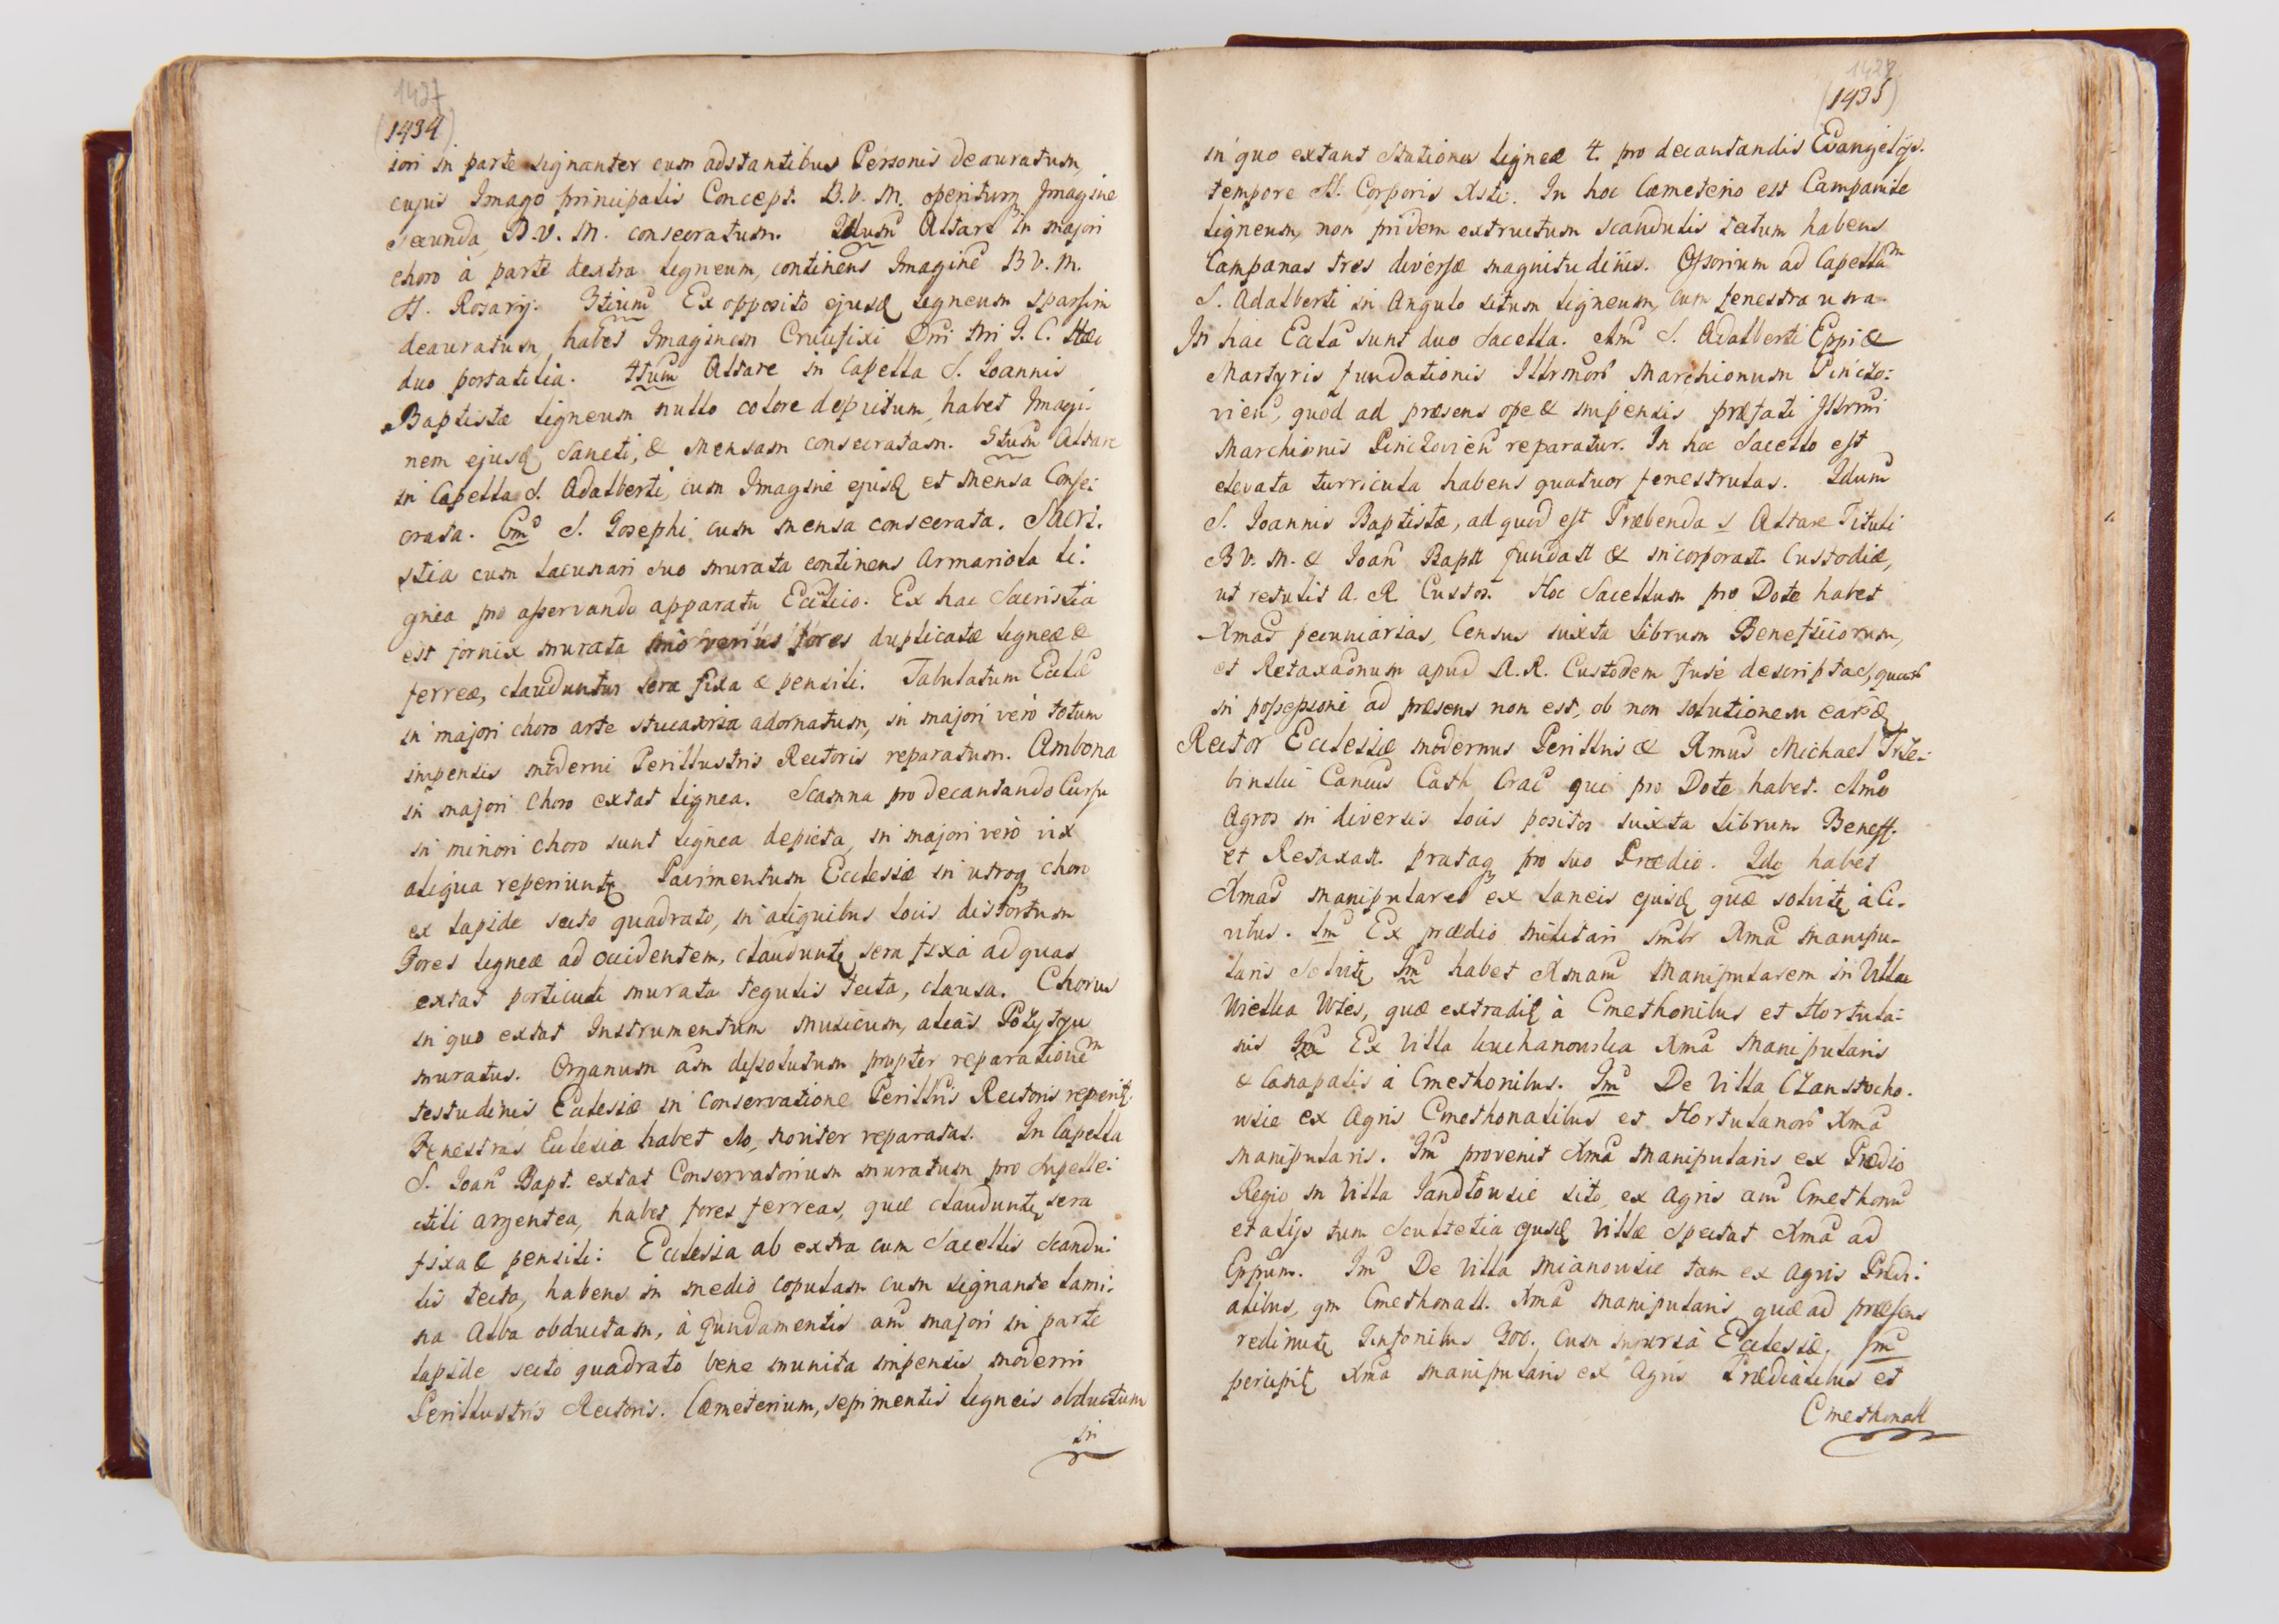 1427
(1434)
iori in parte signanter cum adstantibus Personis deauratum,
cujus Imago principalis Concept. B.V.M. operiturq Imagine
secunda, B.V.M. consecratum. 2dum Altare in majori
choro à parte dextra ligneum, continens Imaginē B V.M.
SS. Rosarij. 3tium Ex opposito ejusd ligneum sparsim
deauratum, habet Imaginem Crucifixi Dni Nri J. C. Hæc
duo portatilia. 4tum Altare in Capella S. Joannis
Baptistæ ligneum nullo colore depictum, habet Imagi-
nem ejusd Sancti, & Mensam consecratam. 5tum Altare
in Capella S. Adalberti, cum Imagine ejusd et Mensa Conse-
crata. 6m S. Josephi cum mensa consecrata. Sacri-
stia cum lacunari suo murata continens Armariola li-
gnea pro asservando apparatu Ecclico. Ex hac Sacristia
est fornix murata fores duplicatæ ligneæ &
ferreæ, clauduntur sera fixa & pensili. Tabulatum Ecclæ
in majori choro arte stucatoria adornatum, in majori verò totum
impensis moderni Perillustris Rectoris reparatum. Ambona
in majori Choro extat lignea. Scamna pro decantando Cursu
in minori choro sunt lignea depicta, in majori verò vix
aliqua reperiuntr Pavimentum Ecclesiæ in utroq choro
ex lapide secto quadrato, in aliquibus locis distortum
Fores ligneæ ad occidentem, clauduntr sera fixa ad quas
extat porticula murata tegulis tecta, clausa. Chorus
in quo extat Instrumentum Musicum, alias Pozytyw
muratus. Organum am dissolutum propter reparationem
testudinis Ecclesiæ in conservatione Perillris Rectoris reperitr.
Fenestras Ecclesia habet noviter reparatas. In Capella
S. Joan Bapt. extat Conservatorium muratum pro supelle-
ctili argentea, habet fores ferreas, quæ clauduntr sera
fixa & pensili: Ecclesia ab extra cum Sacellis Scandu-
lis tecta, habens in medio copulam cum signante lami-
na Alba obductam, à fundamentis am majori in parte
lapide secto quadrato bene munita impensis moderni
Perillustris Rectoris. Cæmeterium, sepimentis ligneis obductum
in
1428
(1435)
in quo extant Stationes ligneæ 4. pro decantandis Evangelijs.
tempore SS. Corporis Xsti. In hoc Cæmeterio est Campanile
ligneum, non pridem extructum scandulis tectum habens
Campanas tres diversæ magnitudinis. Ossorium ad Capellam
S. Adalberti in Angulo situm ligneum, cum fenestra una.
In hac Eccla sunt duo Sacella. 1m S. Adalberti Eppi &
Martyris fundationis Illrmor Marchionum Pinczo-
vien, quod ad præsens ope & impensis præfati Illrmi
Marchionis Pinczovien reparatur. In hoc Sacello est
elevata turricula habens quatuor fenestrulas. 2dum
S. Joannis Baptistæ, ad quod est Præbenda s Altare Tituli
B V. M. & Joan Bapti fundatt & incorporatt. Custodiæ,
ut retulit A. R Custos. Hoc Sacellum pro Dote habet
Xmas pecuniarias, Census iuxta librum Beneficiorum,
et Retaxaonum apud A. R. Custodem fusè descriptas, quar
in possessione ad præsens non est, ob non solutionem eard
Rector Ecclesiæ modernus Perillris & Rmus Michael Trze-
binski Canus Cath Crac qui pro Dote habet. 1mo
Agros in diversis locis positos iuxta librum Beneff.
et Retaxatt. prataq pro suo Prædio. 2do habet
Xmas manipulares ex laneis ejusd quæ solvitr à Ci-
vibus. Im Ex prædio militari simlr Xma Manipu-
laris solvitr Im habet Xmam Manipularem in Villa
Wielka Wies, quæ extraditr à Cmethonibus et Hortula-
nis Im Ex Villa kuchanowska Xma Manipularis
& Canapalis à Cmethonibus. Im De Villa Czanstocho-
wice ex Agris Cmethonalibus et Hortulanor Xma
manipularis. Im provenit Xma Manipularis ex Prædio
Regio in Villa Jandtowie sito, ex Agris am Cmethonu
et alijs tum Scultetia ejusd Villæ spectat Xma ad
Eppum. Im De Villa Mianowie tam ex Agris Prædi-
alibus, qm Cmethonall. Xma Manipularis quæ ad præsens
redimitr 300. cum Ecclesiæ. Im
percipitr Xma Manipularis ex Agris Prædialibus et
Cmethonall